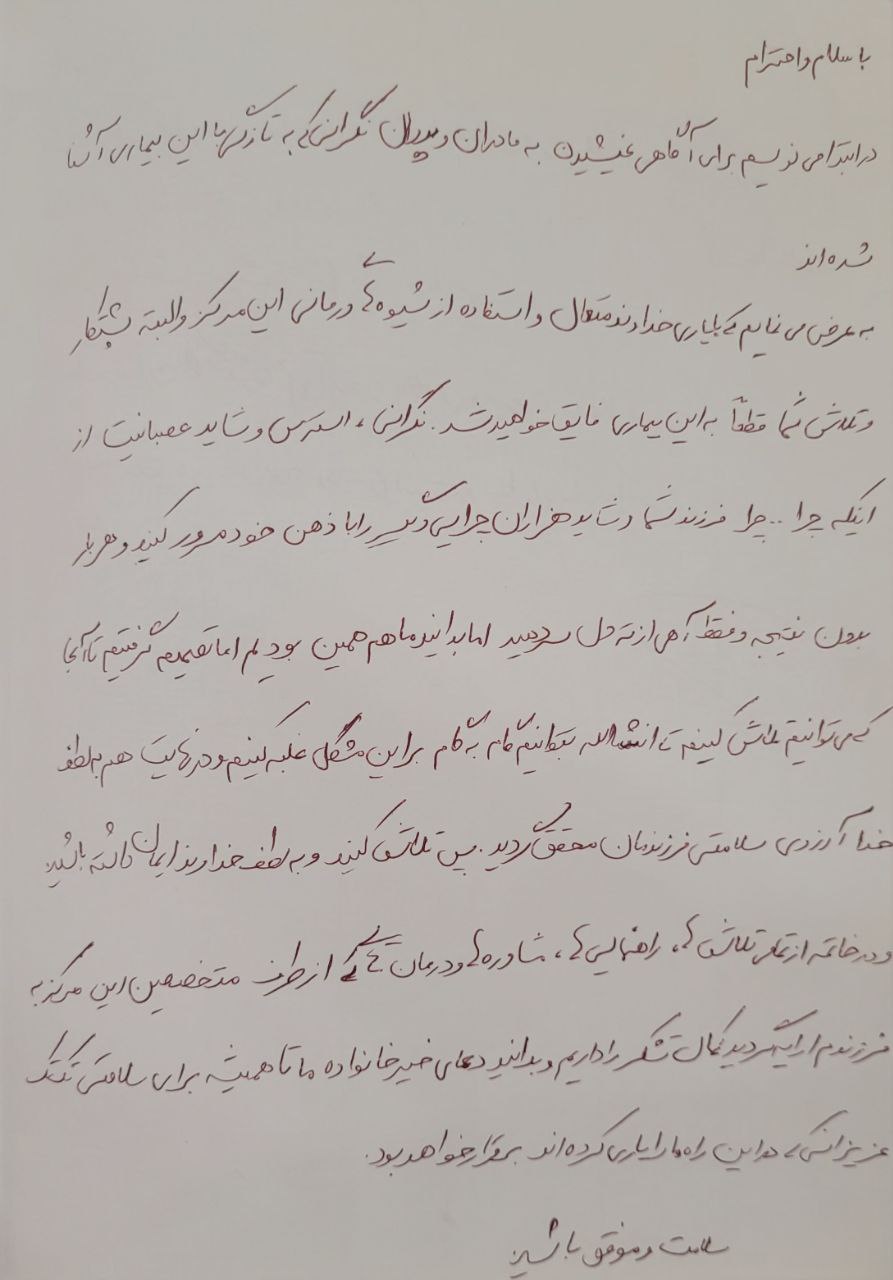 با سلام و احترام
در ابتدا می نویسم برای آگاهی بخشیدن به مادران و پدران نگرانی که به تازگی با این بیماری آشنا
شده اند
به عرض می نمایم که با یاری خداوند متعال و استفاده از شیوه های درمانی این مرکز و البته پشتکار
و تلاش شما قطعاً به این بیماری فایق خواهید شد. نگرانی، استرس و شاید عصبانیت از
اینکه چرا .. چرا فرزند شما و شاید هزاران چرایی دیگر را با ذهن خود مرور کنید و هر بار
بدون نتیجه و فقط آهی از ته دل سر دهید اما بدانید ما هم همین بودیم اما تصمیم گرفتیم تا آنجا
که می توانیم تلاش کنیم تا انشالله بتوانیم گام به گام بر این مشکل غلبه کنیم و در نهایت هم به لطف
خدا آرزوی سلامتی فرزندمان محقق گردید. پس تلاش کنید و به لطف خداوند ایمان داشته باشید
و در خاتمه از تمام تلاش ها، راهنمایی ها، مشاوره ها و درمان هایی که از طرف متخصصین این مرکز به
فرزندم ارایه گردید کمال تشکر را داریم و بدانید دعای خیر خانواده ما تا همیشه برای سلامتی تک تک
عزیزانی که در این راه ما را یاری کرده اند برقرار خواهد بود.
سلامت و موفق باشید